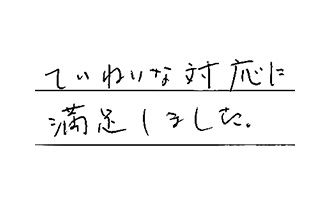 ていねいな対応に
満足しました。